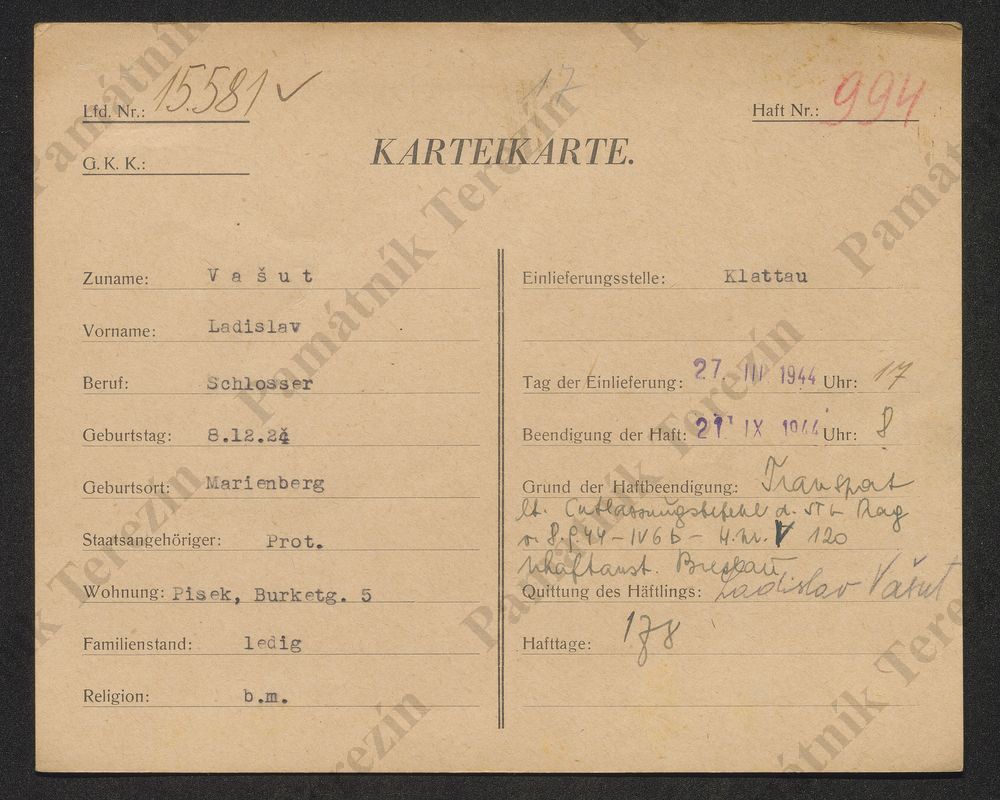 Lfd. Nr.: 15.581 ✓
17
Haft Nr.: 994
G. K. K.:
KARTEIKARTE.
Zuname: Vašut
Vorname: Ladislav
Beruf: Schlosser
Geburtstag: 8.12.24
Geburtsort: Marienberg
Staatsangehöriger: Prot.
Wohnung: Pisek, Burketg. 5
Familienstand: ledig
Religion: b.m.
Einlieferungsstelle: Klattau
Tag der Einlieferung: 27. III 1944 Uhr: 17
Beendigung der Haft: 21 IX 1944 Uhr: 8
Grund der Haftbeendigung: Transport
lt. Entlassungsbefehl d. Prag
v. 8.9.44 - IV6b - 120
Uhaftanst. Breslau
Quittung des Häftlings: Ladislav Vašut
Hafttage: 178
Památník Terezín